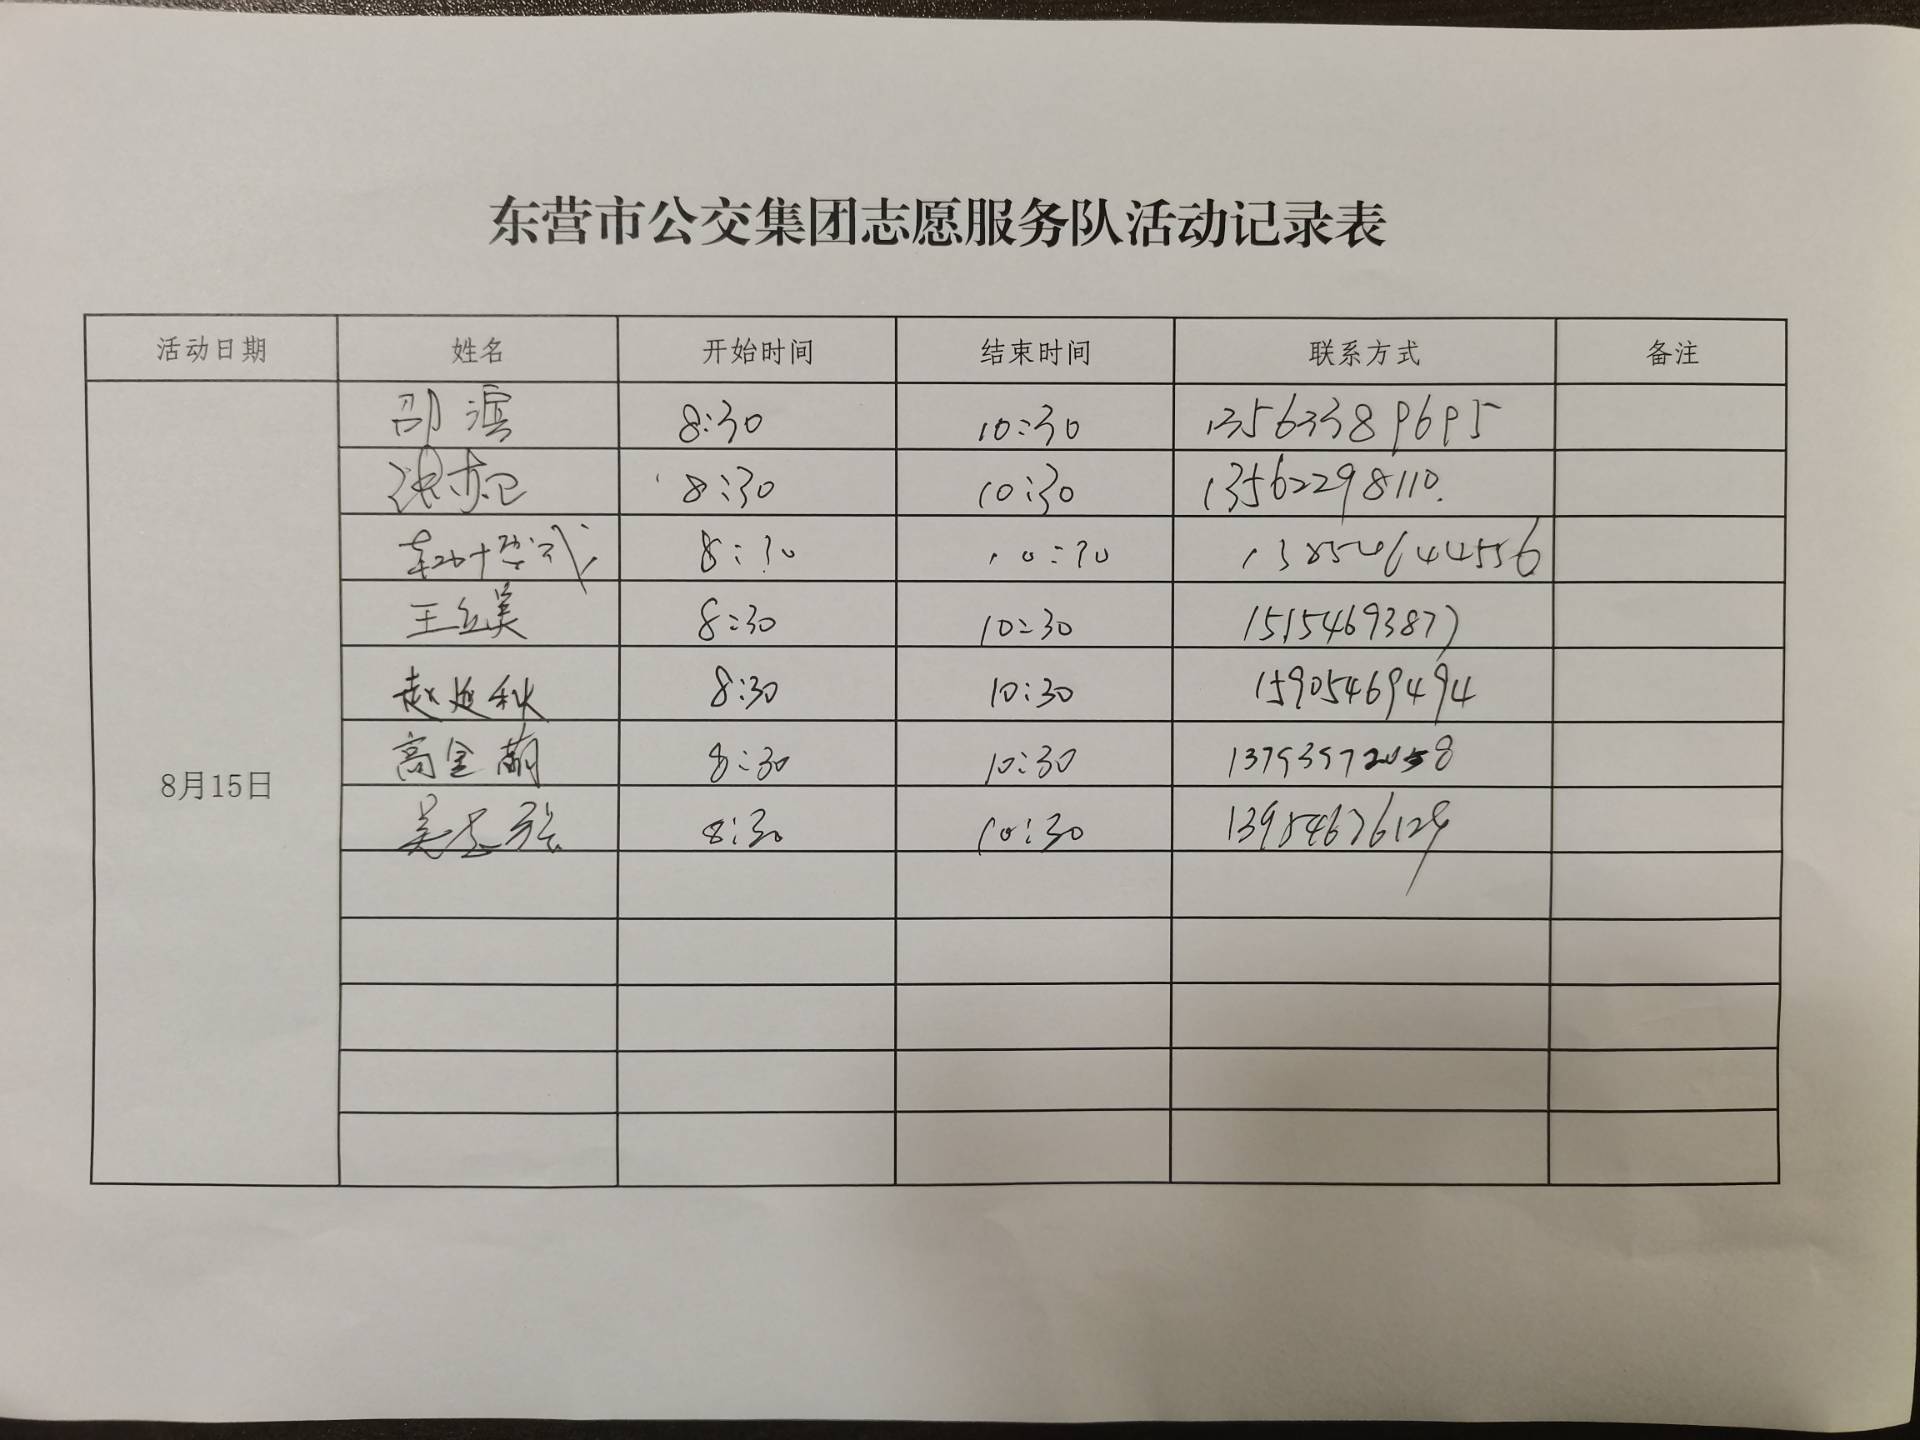 东营市公交集团志愿服务队活动记录表
活动日期 姓名 开始时间 结束时间 联系方式 备注
邵滨 8:30 10:30 13563389695
8:30 10:30 13562298110.
8:30 10:30 13854644556
王立美 8:30 10:30 15154693877
赵延秋 8:30 10:30 15905469494
高金萌 8:30 10:30
8月15日
吴志强 8:30 10:30